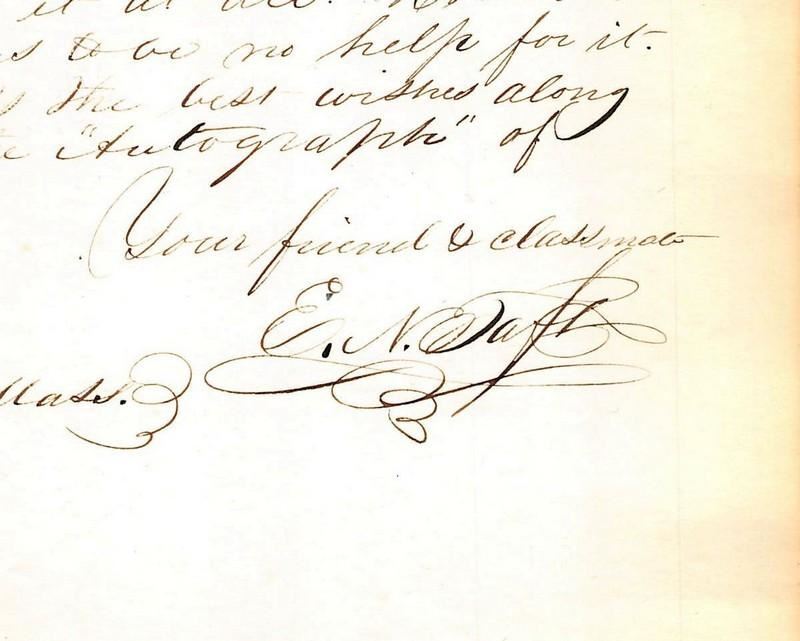 it at all.
to be no help for it.
the best wishes along
"Autograph" of
Your friend & classmate
E. N. Taft
Mass.